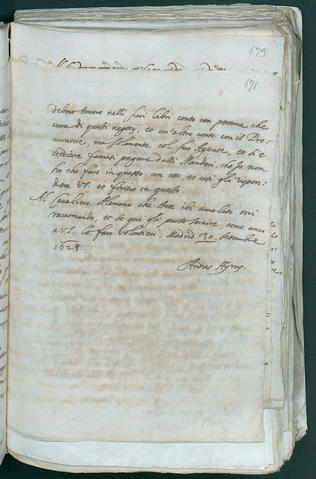 673
671
debino tenere nelli suoi libri conto con persone che
cura di questi negotij, et un'altro conto con il Pro
curatore, ma solamente col suo Agente, et s'è
credere farsisi pagare dalli Mandori, che io non
ho che fare in questo con esse, et così gli rispon
dera VS. et finirò in questo
Al Cavaliere Alemano che stete ibi amalato mi
racomando, et se qui gli posso servire, come anco
a VS. lo farò volontieri. Madrid 30. settembre
1628
Andres